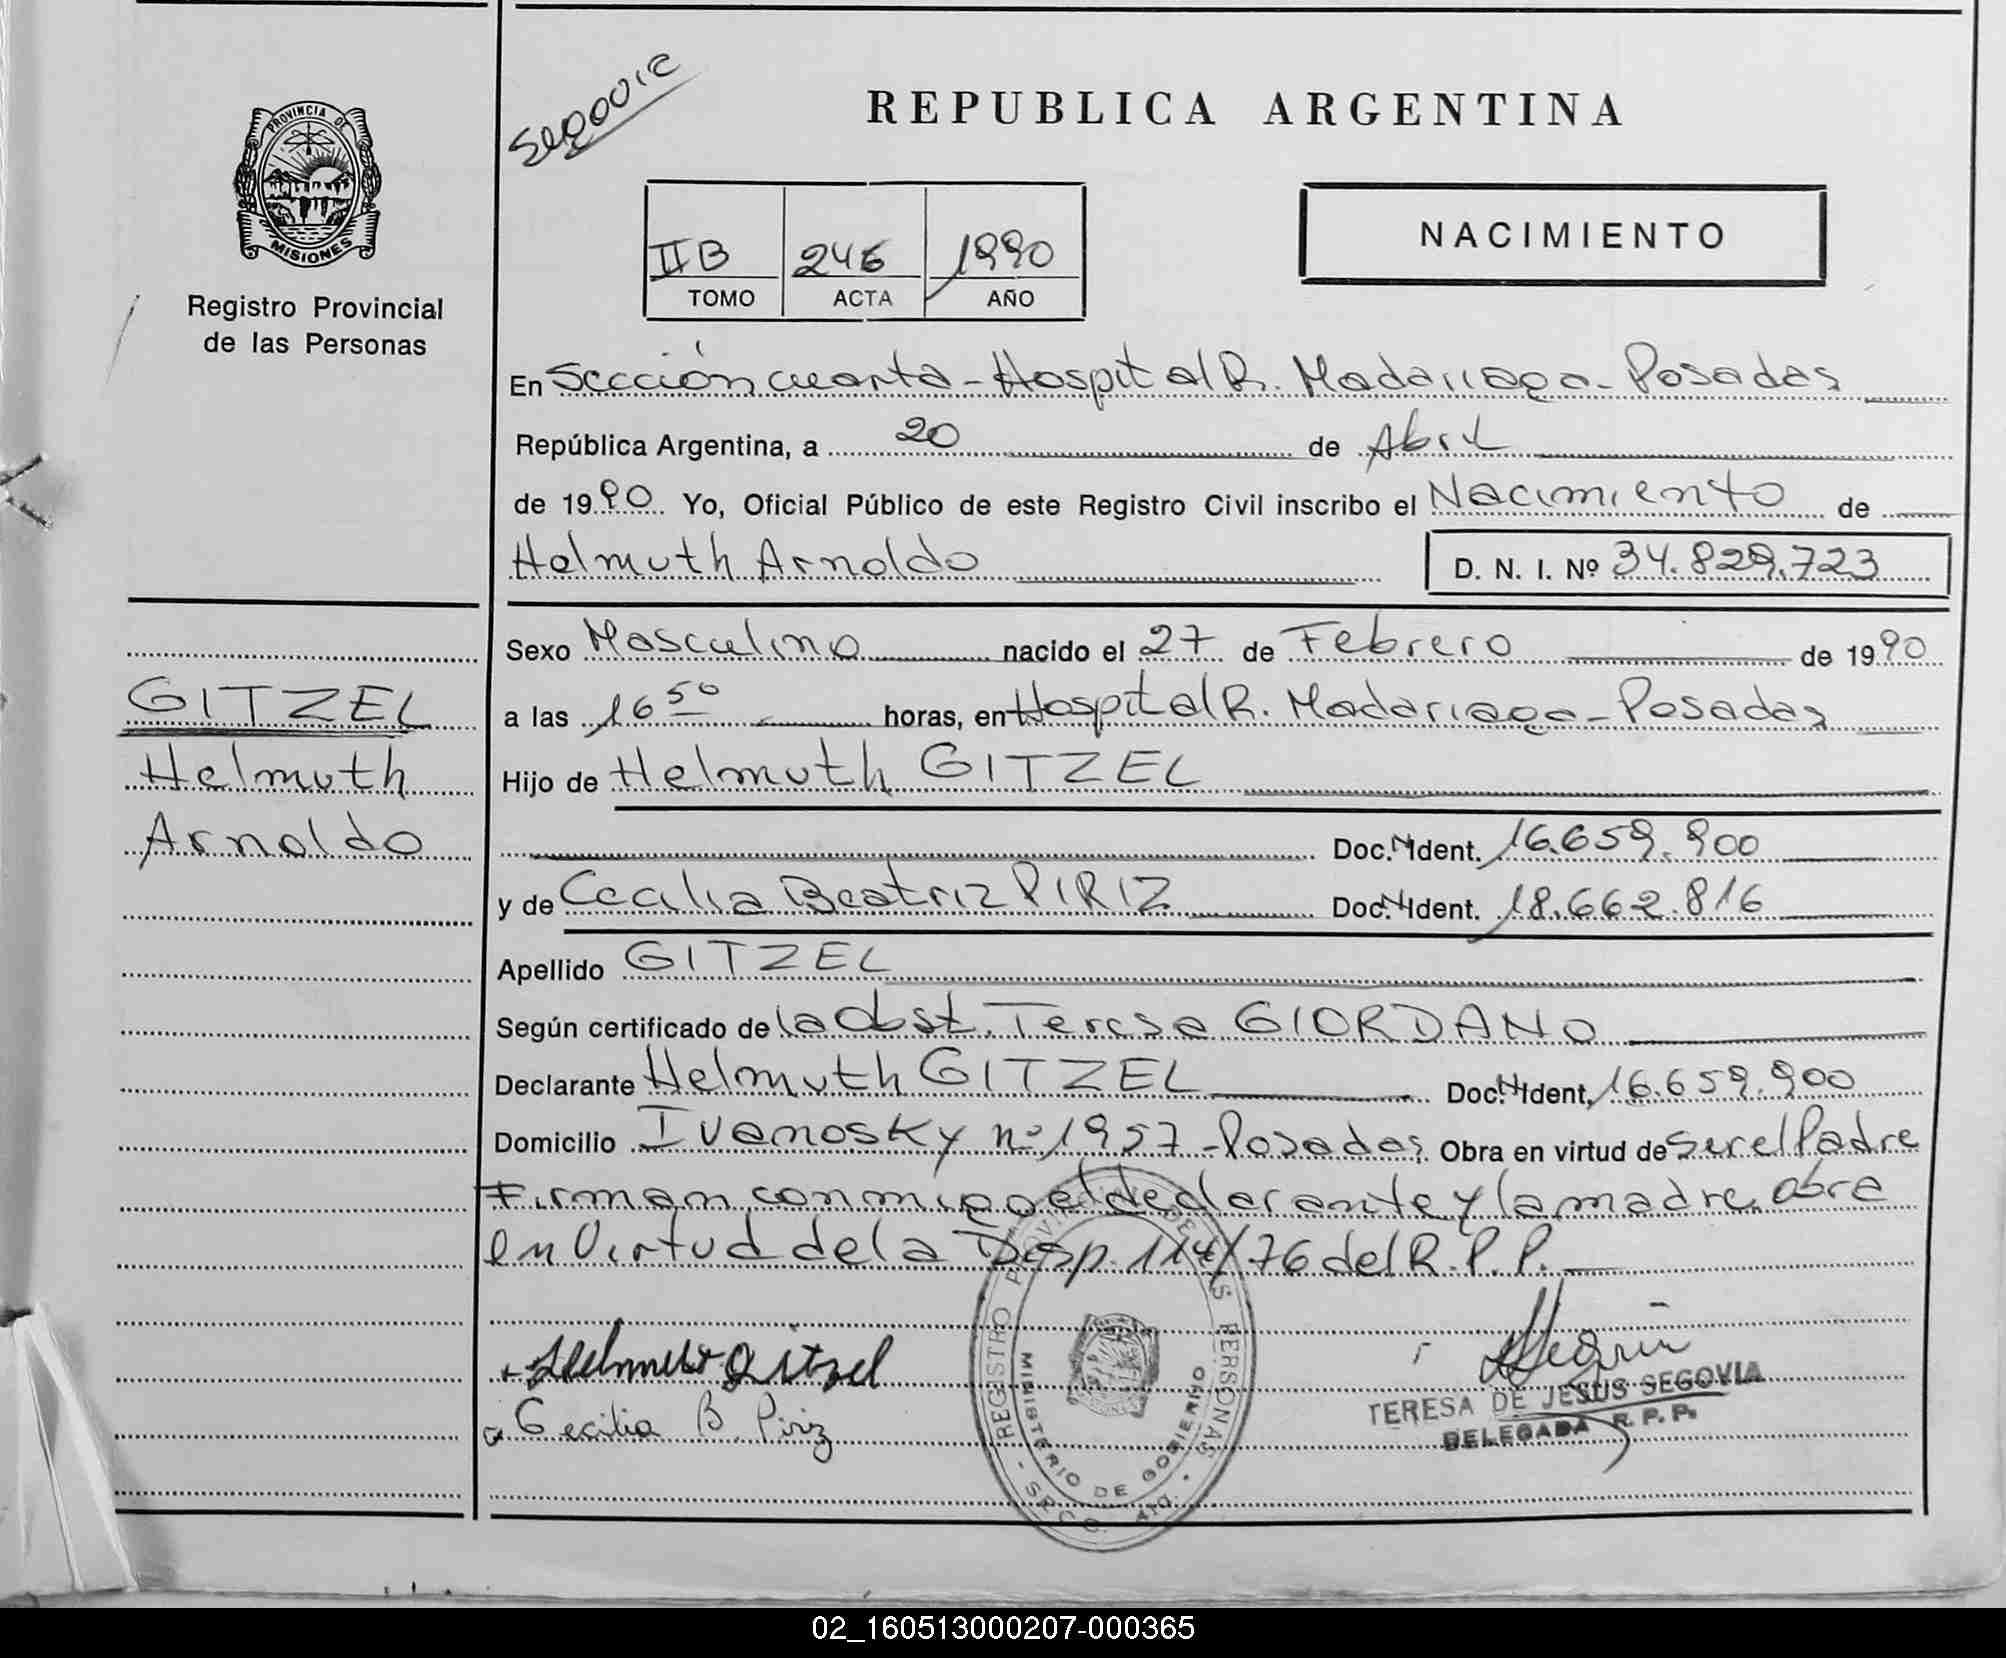 Segovia
REPUBLICA ARGENTINA
PROVINCIA DE
MISIONES
Registro Provincial
de las Personas
IIB 246 1990
TOMO ACTA AÑO
NACIMIENTO
En Sección cuarta - Hospital R. Madariaga - Posadas
República Argentina, a 20 de Abril
de 1990 Yo, Oficial Público de este Registro Civil inscribo el Nacimiento de
Helmuth Arnoldo D. N. I. Nº 34.829.723
Sexo Masculino nacido el 27 de Febrero de 1990
a las 16 50 horas, en Hospital R. Madariaga - Posadas
Hijo de Helmuth GITZEL
Doc. N Ident. 16.659.900
y de Cecilia Beatriz PIRIZ Doc. N Ident. 18.662.816
Apellido GITZEL
Según certificado de la Obst. Teresa GIORDANO
Declarante Helmuth GITZEL Doc. N Ident. 16.659.900
Domicilio Ivanosky nº 1957 - Posadas Obra en virtud de ser el Padre
Firman conmigo el declarante y la madre. obra
en Virtud de la Disp. 114/76 del R.P.P.
GITZEL
Helmuth
Arnoldo
Helmut Gitzel
Cecilia B. Piriz
REGISTRO PROVINCIAL DE LAS PERSONAS
MINISTERIO DE GOBIERNO
SECC. 4ta.
TERESA DE JESUS SEGOVIA
DELEGADA R. P. P.
02_160513000207-000365